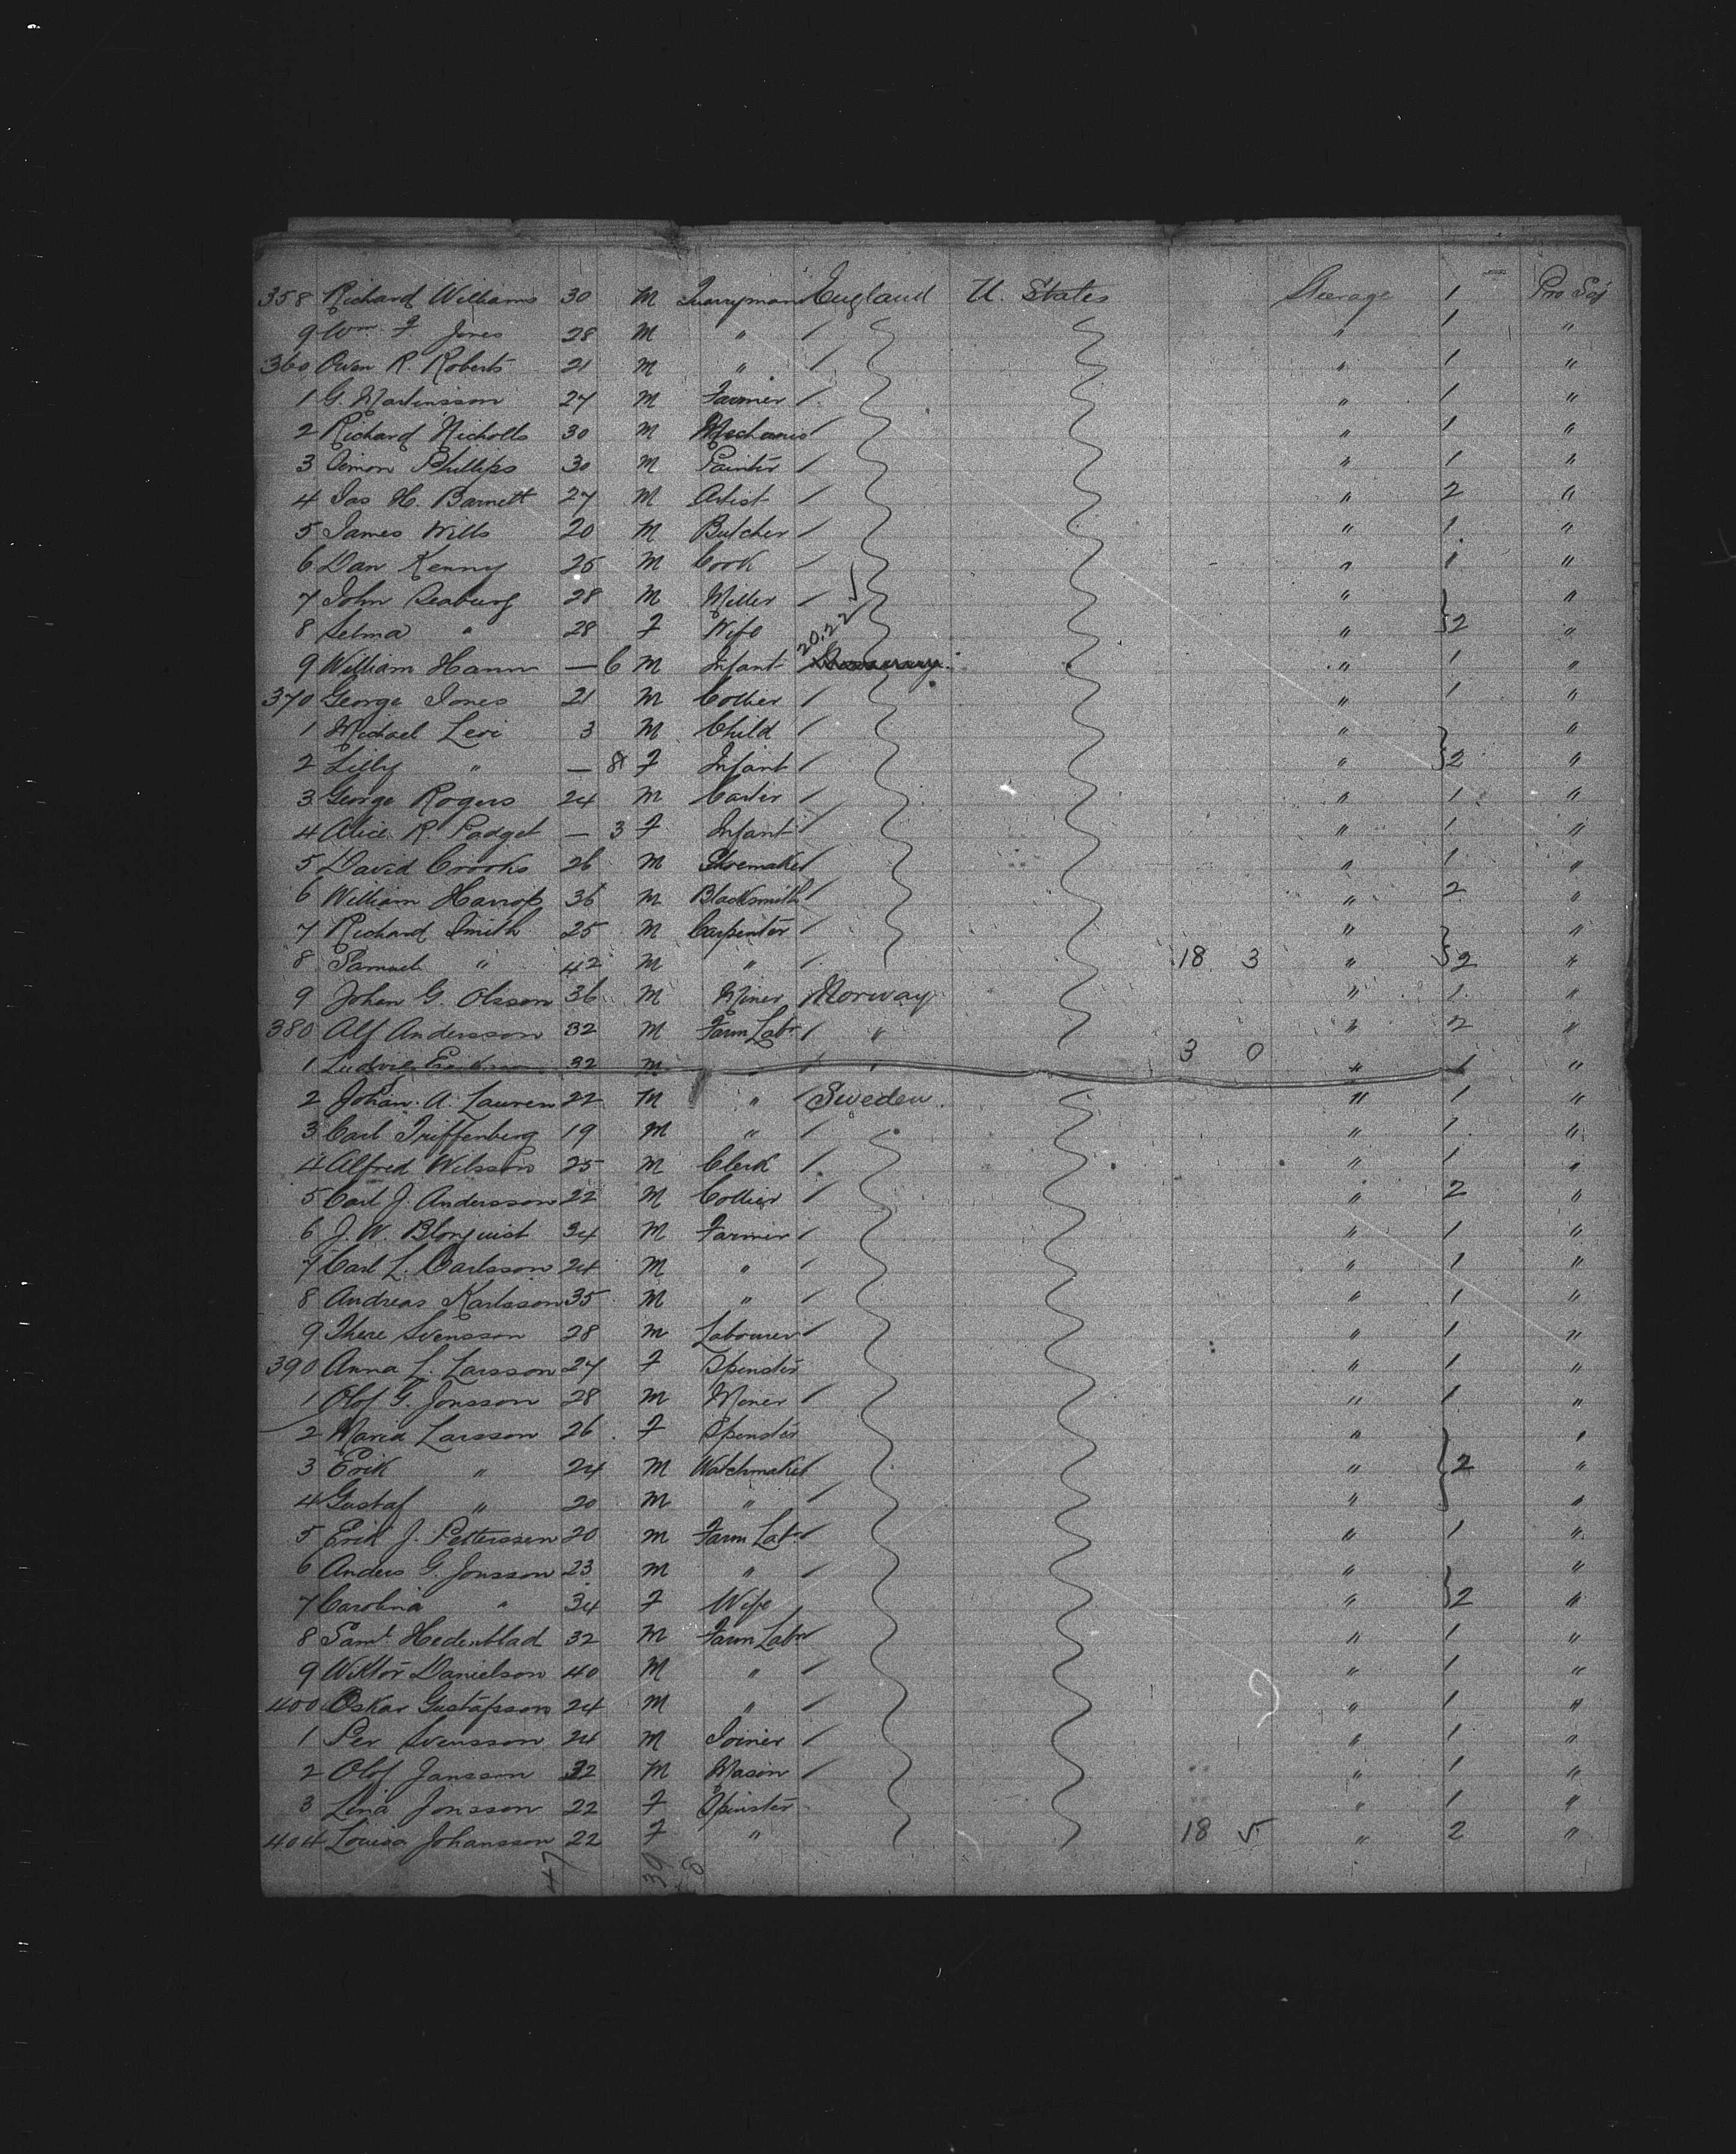 358 Richard Williams 30 M Quarryman England U. States Steerage 1 Pro Soj
9 Wm F Jones 28 M " " 1 "
360 Owen R. Roberts 21 M " " 1 "
1 G. Martinsson 27 M Farmer " 1 "
2 Richard Nicholls 30 M Mechanic " 1 "
3 Simon Phillips 30 M Painter " 1 "
4 Jas H. Barnett 27 M Artist " 2 "
5 James Wills 20 M Butcher " 1 "
6 Dan Kenny 25 M Cook " 1 "
7 John Seaburg 28 M Miller "  "
8 Selma " 28 F Wife " 2 "
20.22
9 William Hann — 6 M Infant " 1 "
370 George Jones 21 M Collier " 1 "
1 Michael Levi 3 M Child " "
2 Lilly " — 8 F Infant " 2 "
3 George Rogers 24 M Carter " 1 "
4 Alice R. Padget — 3 F Infant " 1 "
5 David Crooks 26 M Shoemaker " 1 "
6 William Harrop 36 M Blacksmith " 2 "
7 Richard Smith 25 M Carpenter " "
8 Samuel " 42 M " 18 3 " 2 "
9 Johan G. Olsson 36 M Miner Norway " 1 "
380 Alf Andersson 32 M Farm Labr " " 2 "
3 0
1 Ludvig 32 M " " " 1 "
2 Johan A. Lauren 22 M " Sweden " 1 "
3 Carl Triffenberg 19 M " " 1 "
4 Alfred Wilsson 25 M Clerk " 1 "
5 Carl J. Andersson 22 M Collier " 2 "
6 J. W. Blonquist 34 M Farmer " 1 "
7 Carl L. Carlsson 24 M " " 1 "
8 Andreas Karlsson 35 M " " 1 "
9 Svensson 28 M Labourer " 1 "
390 Anna L. Larsson 27 F Spinster " 1 "
1 Olof G. Jonsson 28 M Moner " 1 "
2 Maria Larsson 26 F Spinster " "
3 Erik " 24 M Watchmaker " 2 "
4 Gustaf " 20 M " " "
5 Erik J. Pettersson 20 M Farm Labr " 1 "
6 Anders G. Jonsson 23 M " " "
7 Carolina " 34 F Wife " 2 "
8 Saml Hedenblad 32 M Farm Labr " 1 "
9 Wiktor Danielson 40 M " " 1 "
400 Oskar Gustafsson 24 M " " 1 "
1 Per Svensson 24 M Joiner " 1 "
2 Olof Jansson 32 M Mason " 1 "
3 Lina Jonsson 22 F Spinster " 1 "
404 Louisa Johansson 22 F " 18 5 " 2 "
47 39 8